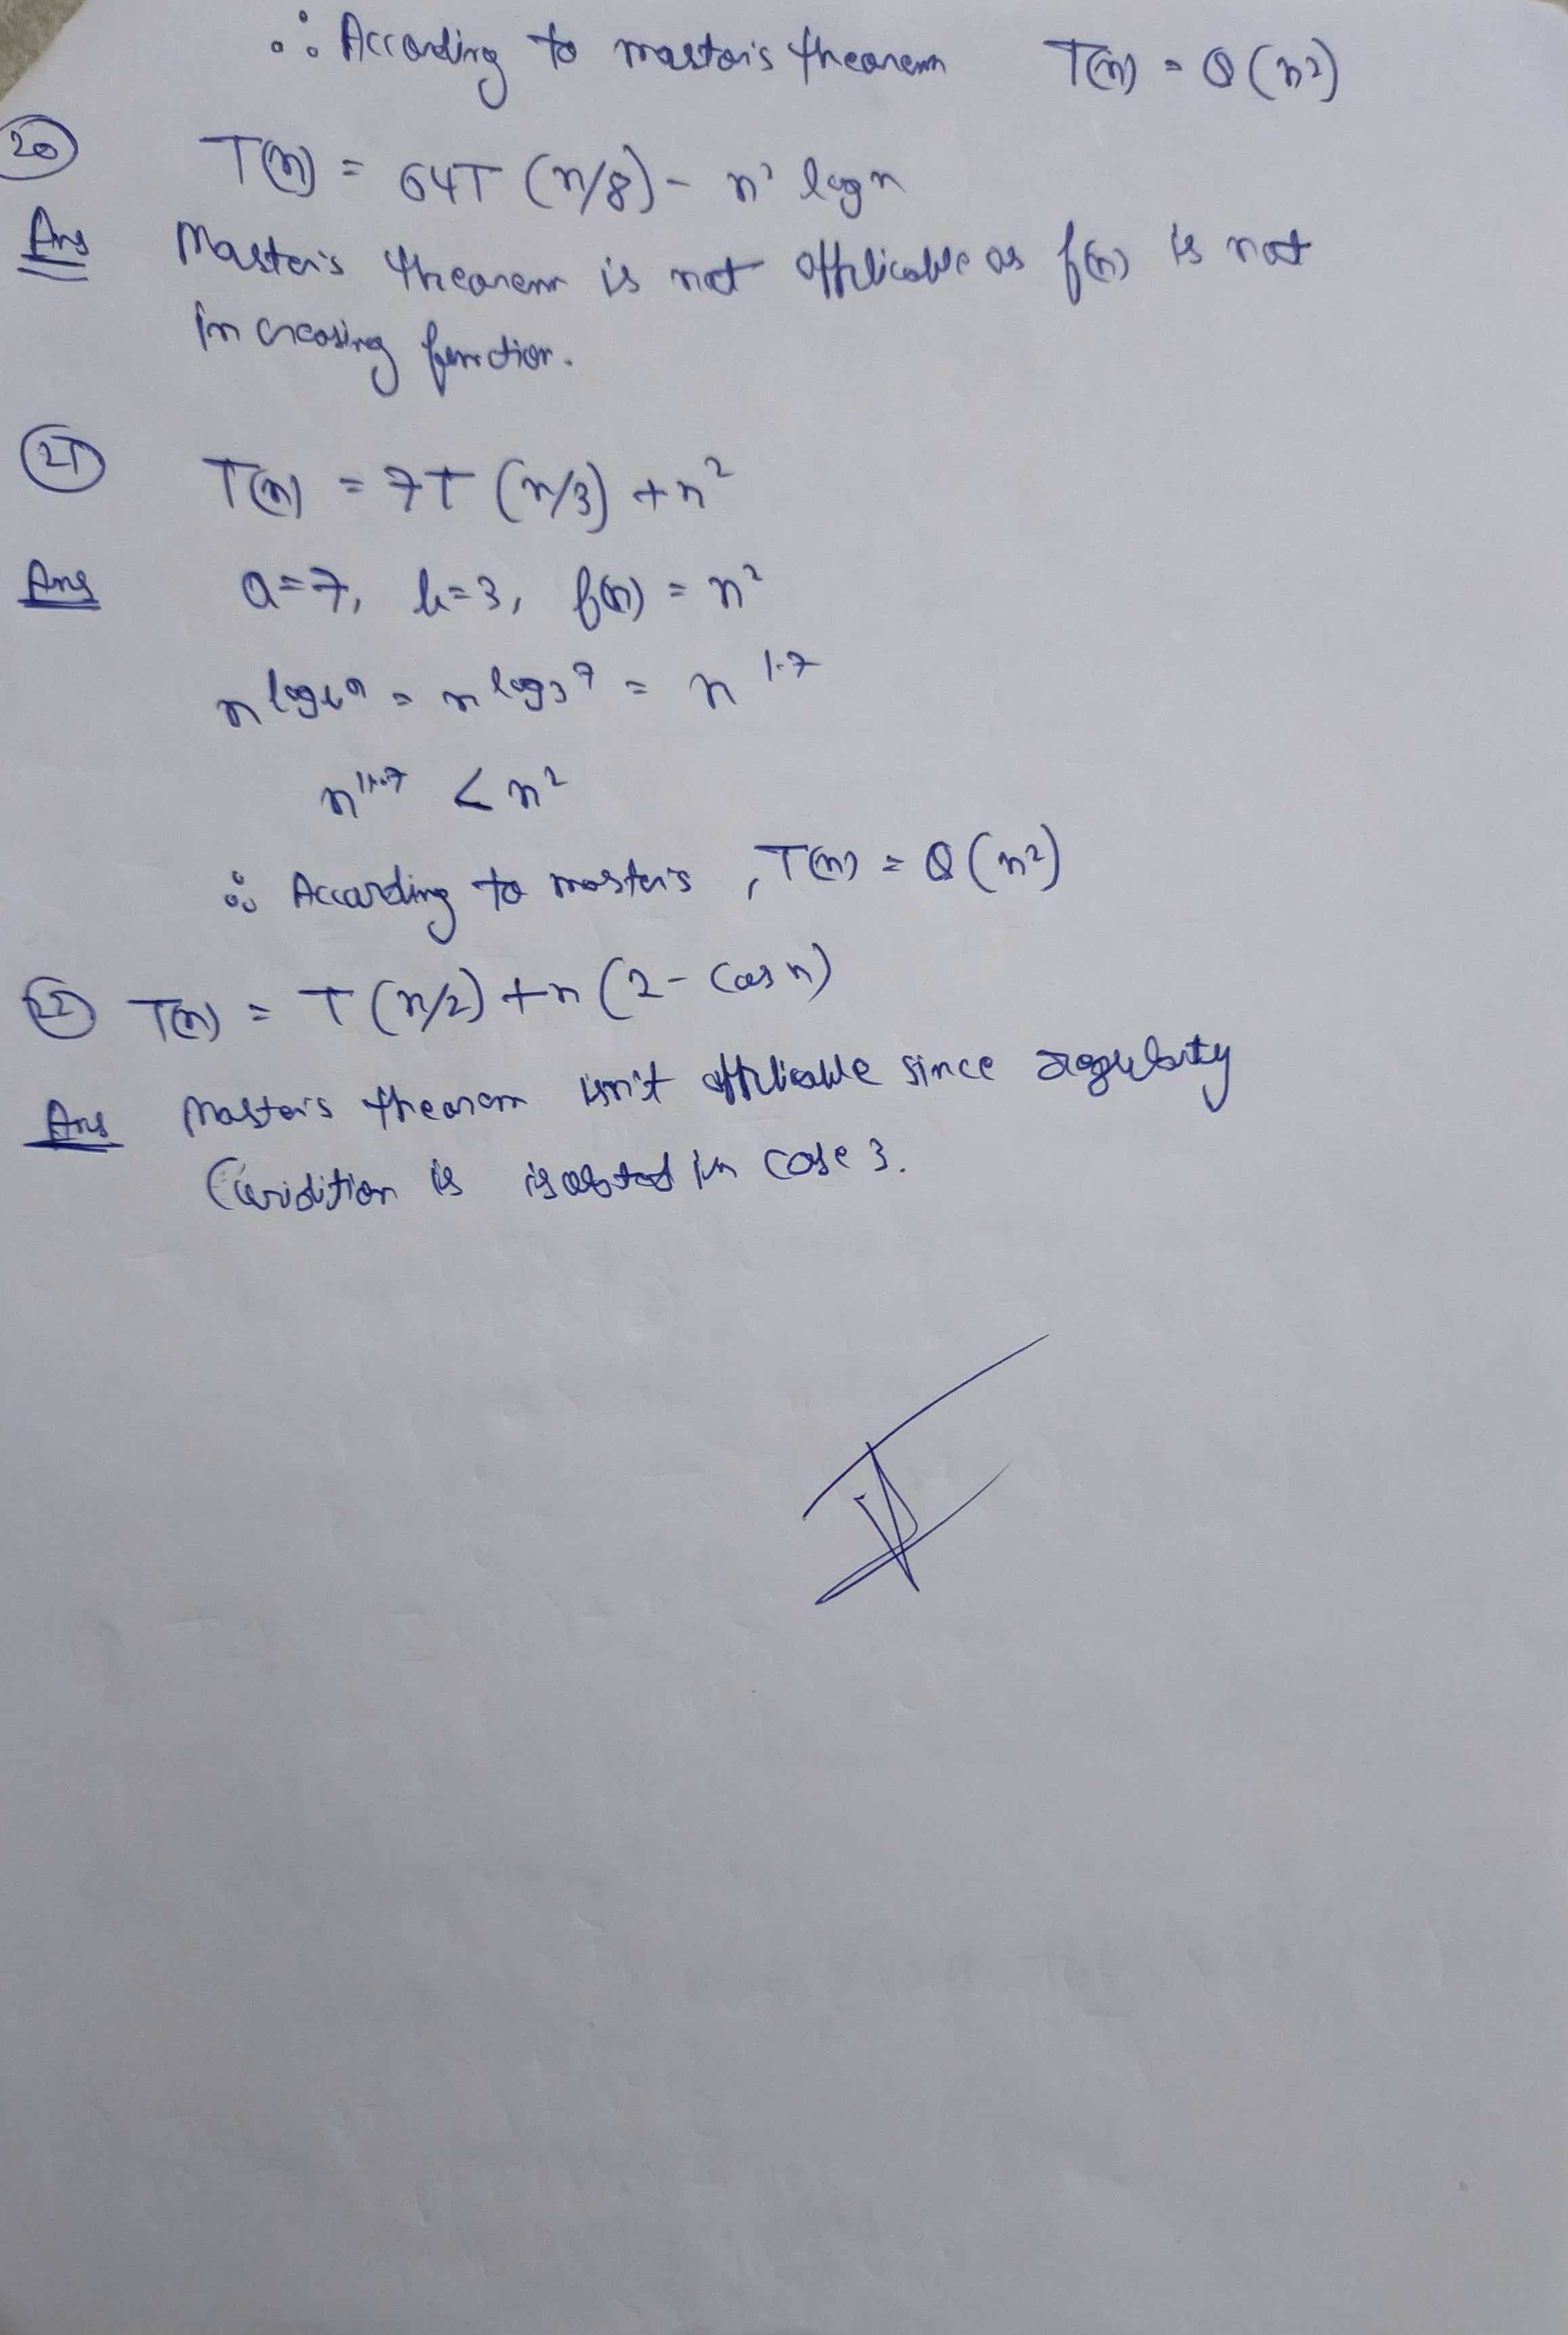 ∴ According to master's theorem T(n) = θ(n²)
20 T(n) = 64T(n/8) - n² log n
Ans Master's theorem is not applicable as f(n) is not
increasing function.
21 T(n) = 7T(n/3) + n²
Ans a=7, b=3, f(n) = n²
n^log_b a = n^log_3 7 = n^1.7
n^1.7 < n²
∴ According to master's, T(n) = θ(n²)
22 T(n) = T(n/2) + n(2 - cos n)
Ans Master's theorem isn't applicable since regularity
Condition is in case 3.